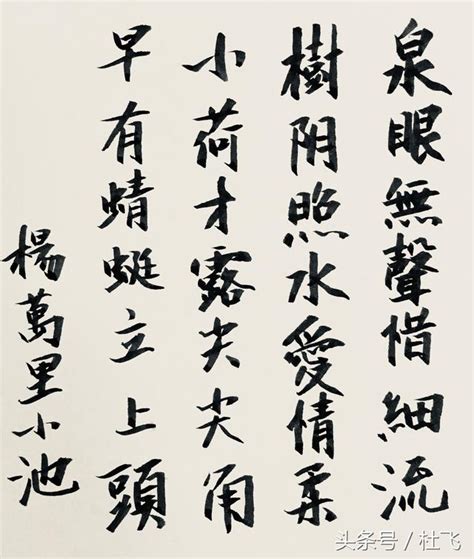 泉眼無聲惜細流
樹阴照水愛情柔
小荷才露尖尖角
早有蜻蜓立上頭
楊萬里小池
头条号/杜飞